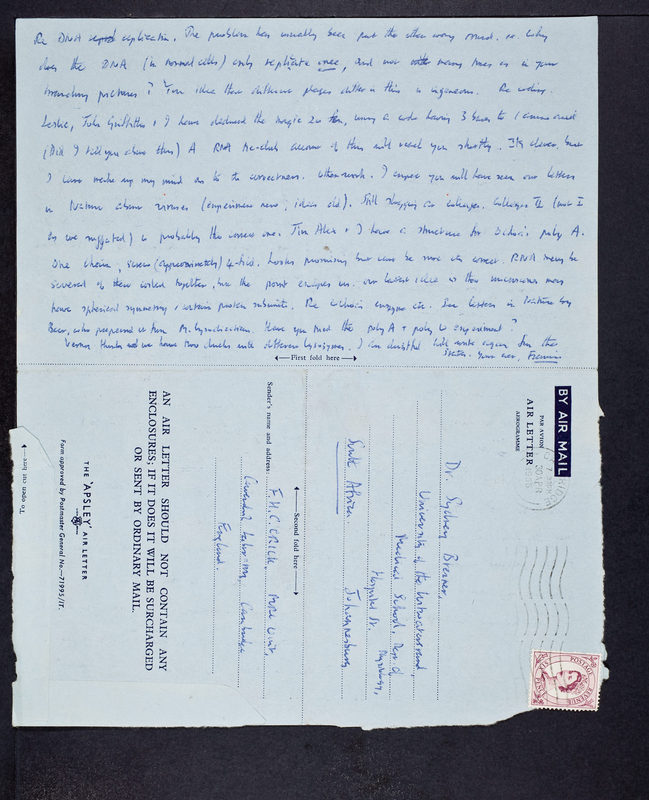 Re DNA replication. The problem has usually been put the other way round. ie. Why
does the DNA (in normal cells) only replicate once, and not many times as in your
branching pictures? Your idea that different phages differ in this is ingenious. Re coding.
Leslie, John Griffiths & I have deduced the magic 20 from, using a code having 3 bases to 1 amino acid
(Did I tell you about this?) A RNA tie-club account of this will reach you shortly. It's clever, but
I have made up my mind as to its correctness. Other work. I expect you will have seen our letters
in Nature about viruses (experiment new, ideas old). Still slogging on collagen. Collagen II (not I
as we suggested) is probably the correct one. Jim, Alex & I have a structure for Ochoa's poly A.
One chain, screw (approximately) 4-fold. Looks promising but can't be sure it's correct. RNA may be
several of these coiled together, but the point escapes us. Our latest idea is that microsomes may
have spherical symmetry & contain protein subunits. Re enzyme etc. See letters in Nature by
who prepared it from M. lysodeikticus. Have you tried the poly A + poly U experiment?
Vernon thinks we have two ducks with different lysozymes. I am doubtful. Will write again from the
States. Yours ever, Francis
First fold here
BY AIR MAIL
PAR AVION
AIR LETTER
AEROGRAMME
30 APR
Dr. Sydney Brenner,
University of the Witwatersrand,
Medical School, Dept. of
Physiology,
Hospital St.
Johannesburg
South Africa
POSTAGE
REVENUE
SIX PENCE
Second fold here
Sender's name and address:
F.H.C. CRICK. MRC Unit,
Cavendish Laboratory, Cambridge
England.
AN AIR LETTER SHOULD NOT CONTAIN ANY
ENCLOSURES; IF IT DOES IT WILL BE SURCHARGED
OR SENT BY ORDINARY MAIL
THE 'APSLEY' AIR LETTER
Form approved by Postmaster General No.—71995/1T.
To open cut here